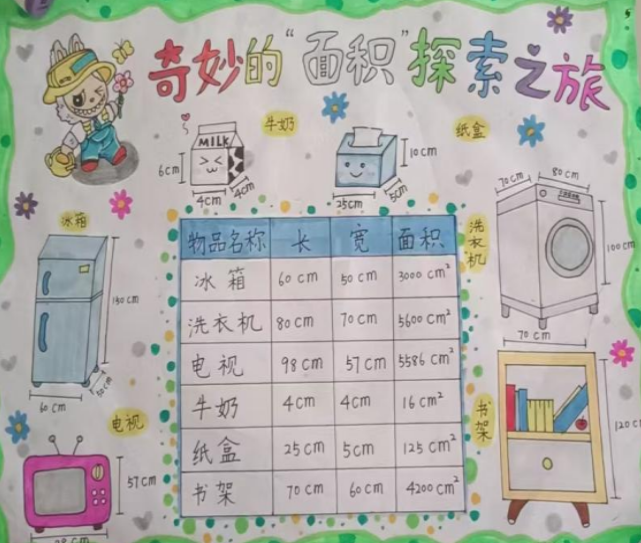 奇妙的“面积”探索之旅
牛奶
纸盒
MILK
6cm
4cm
4cm
10cm
25cm
5cm
冰箱
130cm
60cm
50cm
洗衣机
70cm
80cm
100cm
物品名称 长 宽 面积
冰箱 60cm 50cm 3000cm²
洗衣机 80cm 70cm 5600cm²
电视 98cm 57cm 5586cm²
牛奶 4cm 4cm 16cm²
纸盒 25cm 5cm 125cm²
书架 70cm 60cm 4200cm²
电视
57cm
书架
70cm
120c